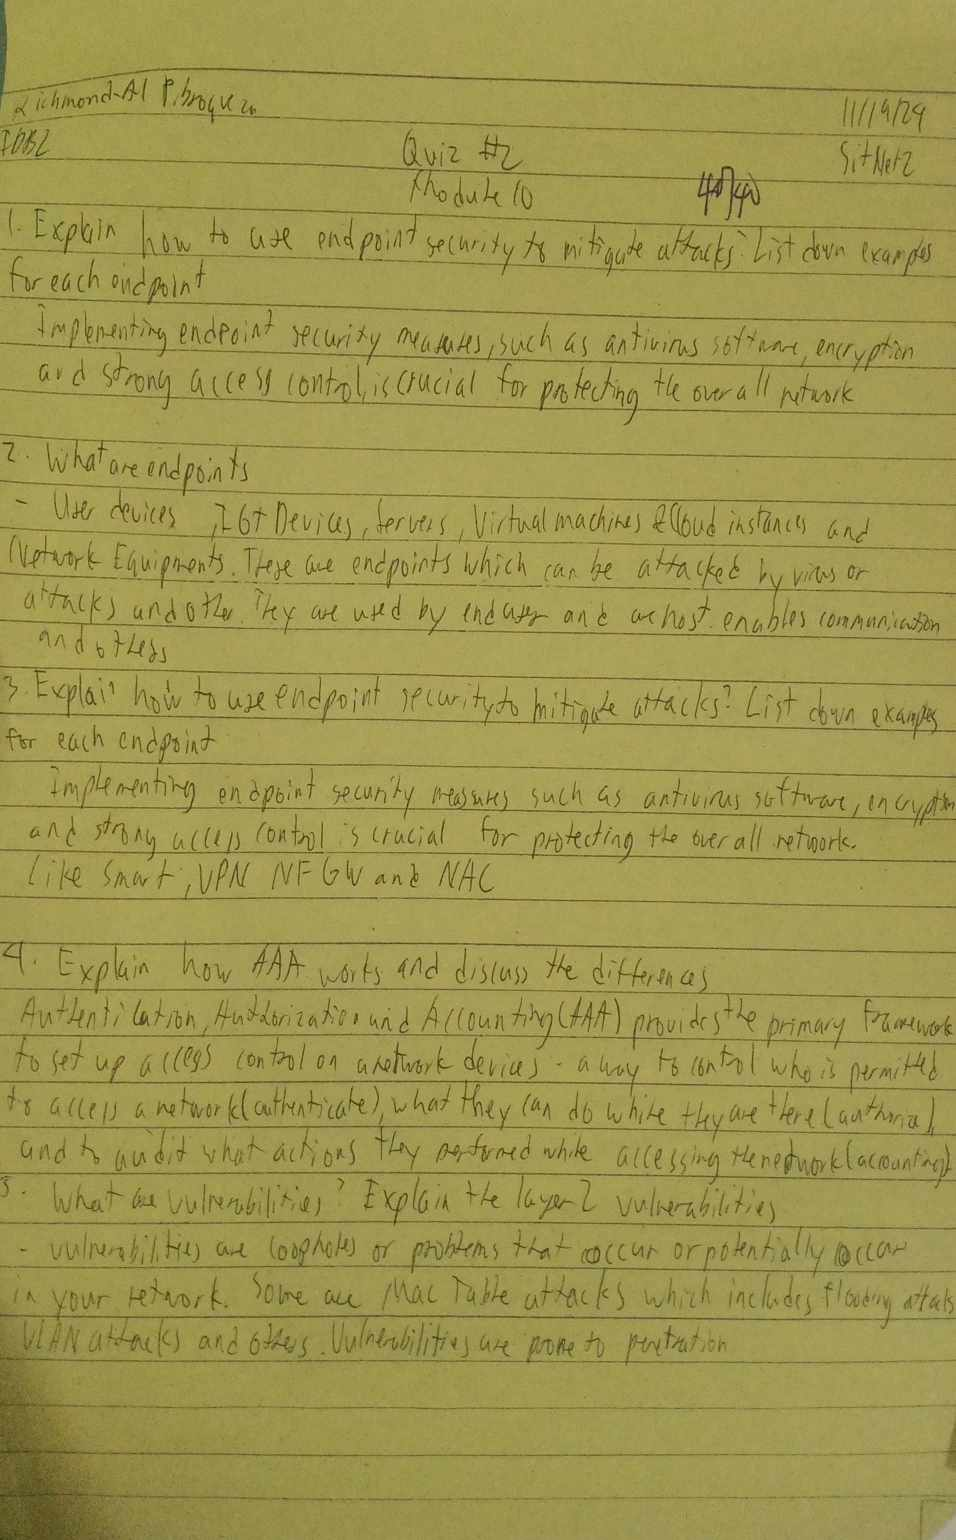 Richmond-Al P.
11/19/24
IDB2
Quiz #2
SitNet2
Module 10
40/40
1. Explain how to use endpoint security to mitigate attacks? List down examples
for each endpoint
Implementing endpoint security measures, such as antivirus software, encryption
and strong access control, is crucial for protecting the overall network
2. What are endpoints
- User devices, IoT Devices, Servers, Virtual machines & Cloud instances and
Network Equipments. These are endpoints which can be attacked by virus or
attacks and other. They are used by end user and are host. enables communication
and others
3. Explain how to use endpoint security to mitigate attacks? List down examples
for each endpoint
Implementing endpoint security measures such as antivirus software, encryption
and strong access control is crucial for protecting the overall network.
Like Smart, VPN NFGW and NAC
4. Explain how AAA works and discuss the differences
Authentication, Authorization and Accounting (AAA) provides the primary framework
to set up access control on a network devices - a way to control who is permitted
to access a network (authenticate), what they can do while they are there (authorize),
and to audit what actions they performed while accessing the network (accounting)
5. What are vulnerabilities? Explain the layer 2 vulnerabilities
- vulnerabilities are loopholes or problems that occur or potentially occur
in your network. Some are Mac Table attacks which includes flooding attacks
VLAN attacks and others. Vulnerabilities are prone to penetration